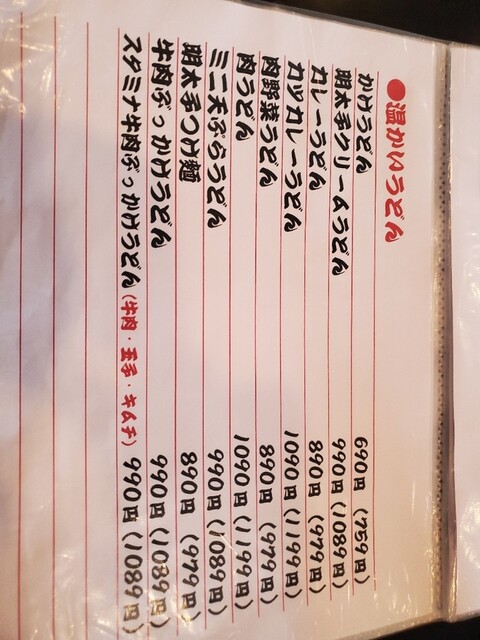 ●温かいうどん
かけうどん 690円 (759円)
明太子クリームうどん 990円 (1089円)
カレーうどん 890円 (979円)
カツカレーうどん 1090円 (1199円)
肉野菜うどん 890円 (979円)
肉うどん 1090円 (1199円)
ミニ天ぷらうどん 990円 (1089円)
明太子つけ麺 890円 (979円)
牛肉ぶっかけうどん 990円 (1089円)
スタミナ牛肉ぶっかけうどん (牛肉・玉子・キムチ) 990円 (1089円)